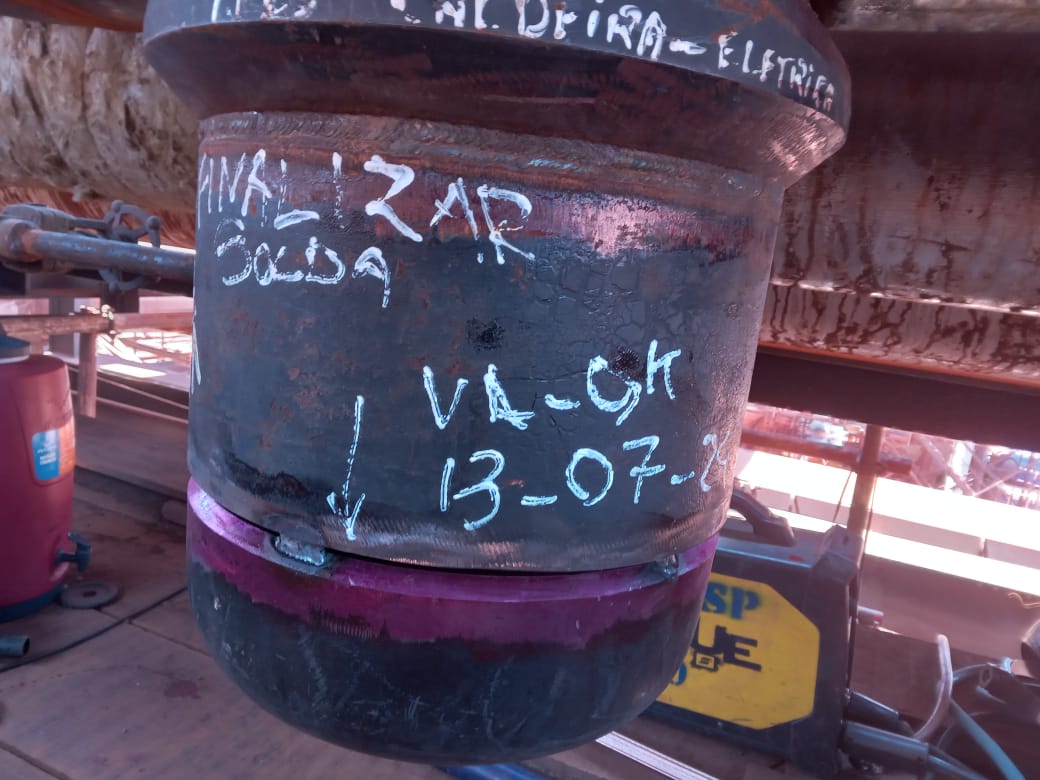 CALDEIRA-ELETRICA
FINALIZAR
SOLDA
VA-OK
13-07-2
SP
UE